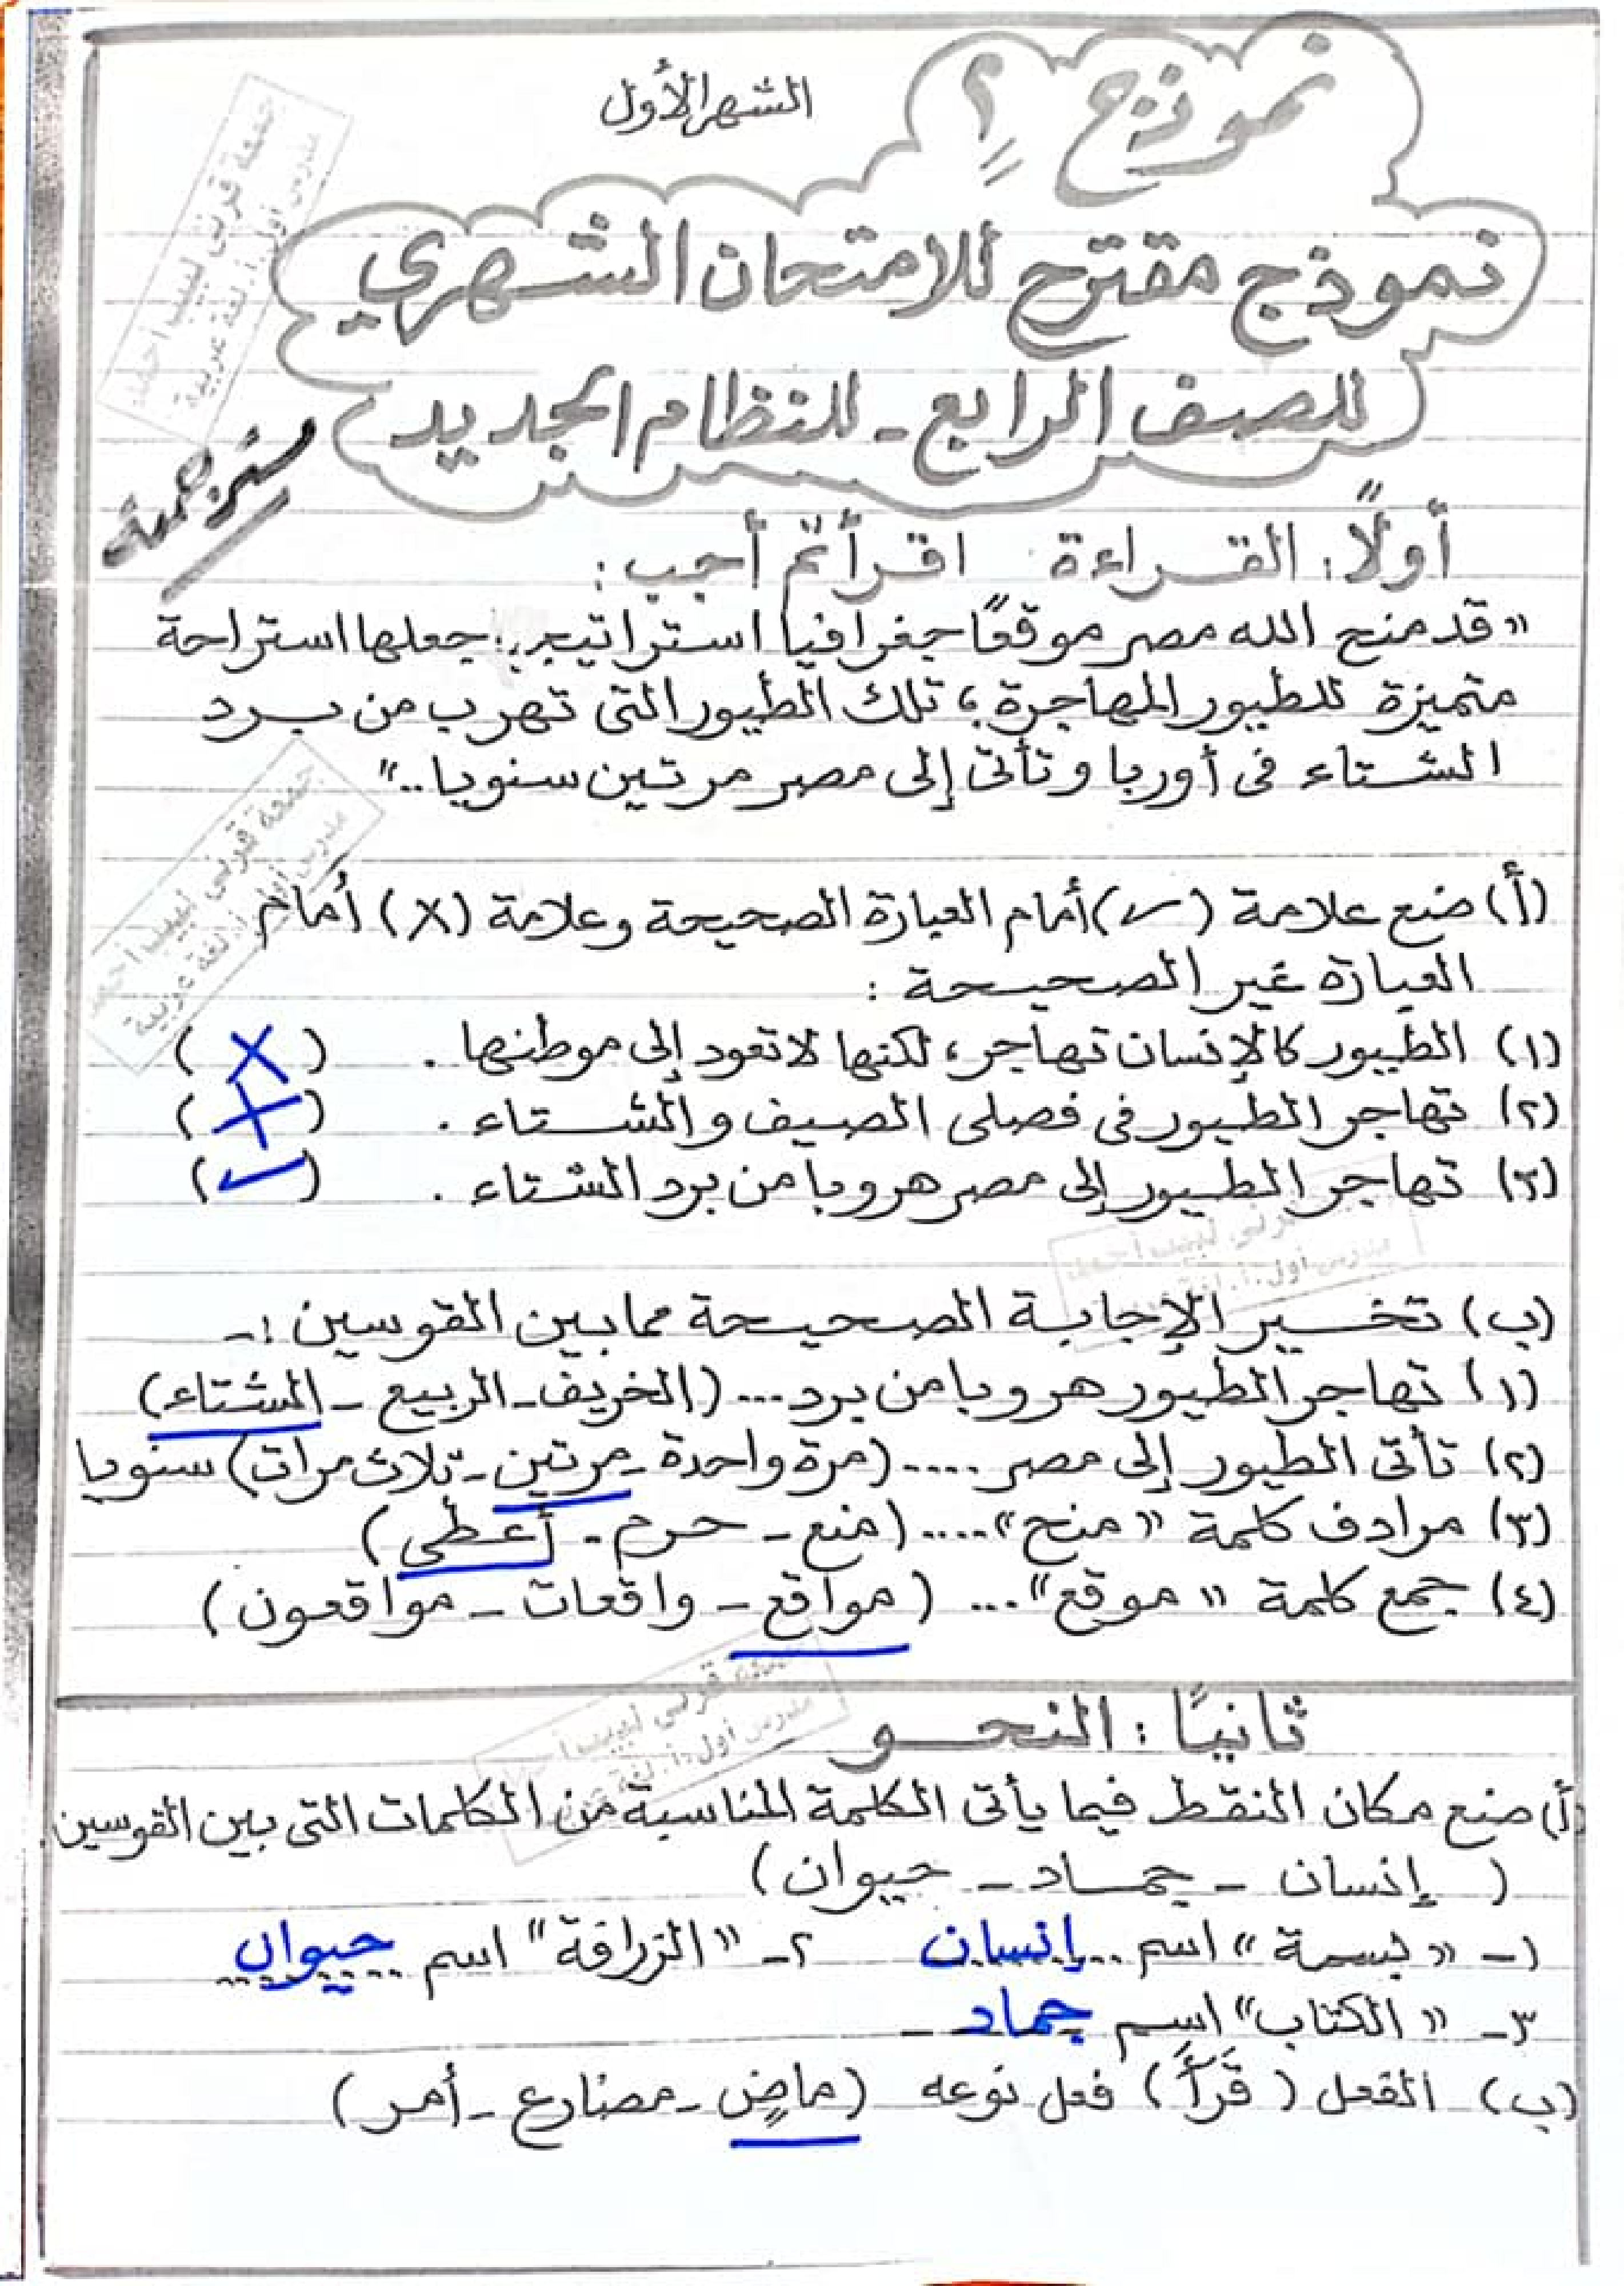 نموذج ٢
الشهر الأول
نموذج مقترح للامتحان الشهري
للصف الرابع - للنظام الجديد
مستر جمعة
أولًا: القراءة اقرأ ثم أجب:
"قد منح الله مصر موقعًا جغرافيا استراتيجيا؛ جعلها استراحة
متميزة للطيور المهاجرة، تلك الطيور التى تهرب من برد
الشتاء فى أوربا وتأتى إلى مصر مرتين سنويا.."
(أ) ضع علامة (✓) أمام العبارة الصحيحة وعلامة (X) أمام
العبارة غير الصحيحة:
(١) الطيور كالإنسان تهاجر، لكنها لا تعود إلى موطنها. (X)
(٢) تهاجر الطيور فى فصلى الصيف والشتاء. (X)
(٣) تهاجر الطيور إلى مصر هروبا من برد الشتاء. (✓)
(ب) تخير الإجابة الصحيحة مما بين القوسين:-
(١) تهاجر الطيور هروبا من برد... (الخريف - الربيع - الشتاء)
(٢) تأتى الطيور إلى مصر .... (مرة واحدة - مرتين - ثلاث مرات) سنويا
(٣) مرادف كلمة "منح".... (منع - حرم - أعطى)
(٤) جمع كلمة "موقع"... (مواقع - واقعات - مواقعون)
ثانيًا: النحو
(أ) ضع مكان النقط فيما يأتى الكلمة المناسبة من الكلمات التى بين القوسين
(إنسان - جماد - حيوان)
١- "بسمة" اسم ..إنسان ٢- "الزرافة" اسم حيوان
٣- "الكتاب" اسم جماد
(ب) الفعل (قَرَأَ) فعل نوعه (ماضٍ - مضارع - أمر)
جمعة قرنى لبيب احمد
مدرس أول.أ. لغة عربية
جمعة قرنى لبيب احمد
مدرس أول.أ. لغة عربية
قرنى لبيب احمد
مدرس أول.أ. لغة
جمعة قرنى لبيب
مدرس أول.أ. لغة